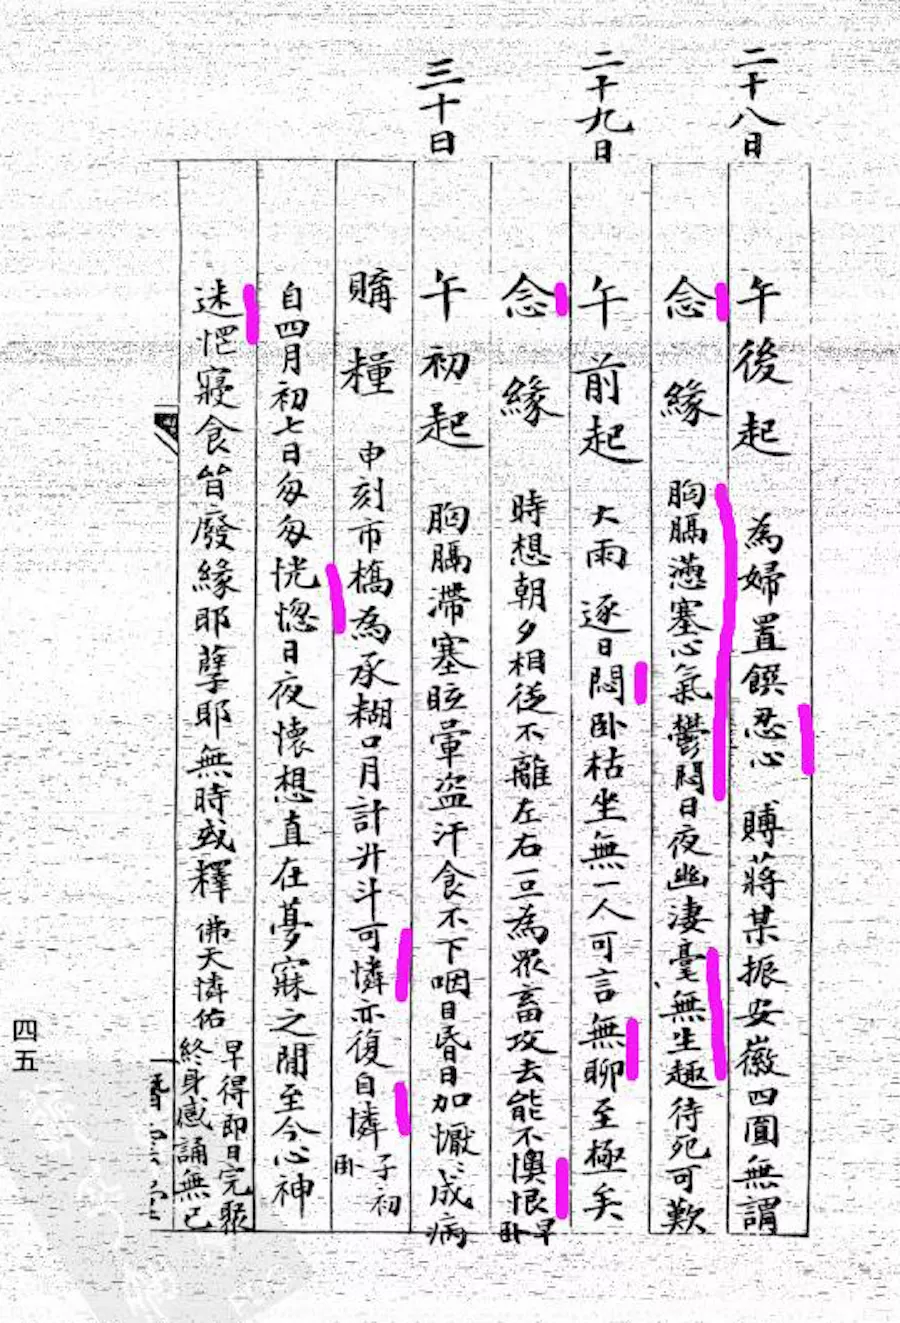 二十八日
午後起 為婦置饌忍心 賻蔣某振安徽四圓無謂
念緣 胸膈懣塞心氣鬱悶日夜幽淒毫無生趣待死可歎
二十九日
午前起 大雨 逐日悶臥枯坐無一人可言無聊至極矣
念緣 時想朝夕相從不離左右一旦為眾畜攻去能不懊恨 早臥
三十日
午初起 胸膈滯塞眩暈盜汗食不下咽日昏日加懨懨成病
購糧 申刻市橋為承糊口月計升斗可憐亦復自憐 子初臥
自四月初七日匆匆恍惚日夜懷想直在夢寐之間至今心神
迷惘寢食皆廢緣耶孽耶無時或釋 佛天憐佑 早得即日完聚
終身感誦無已
四五